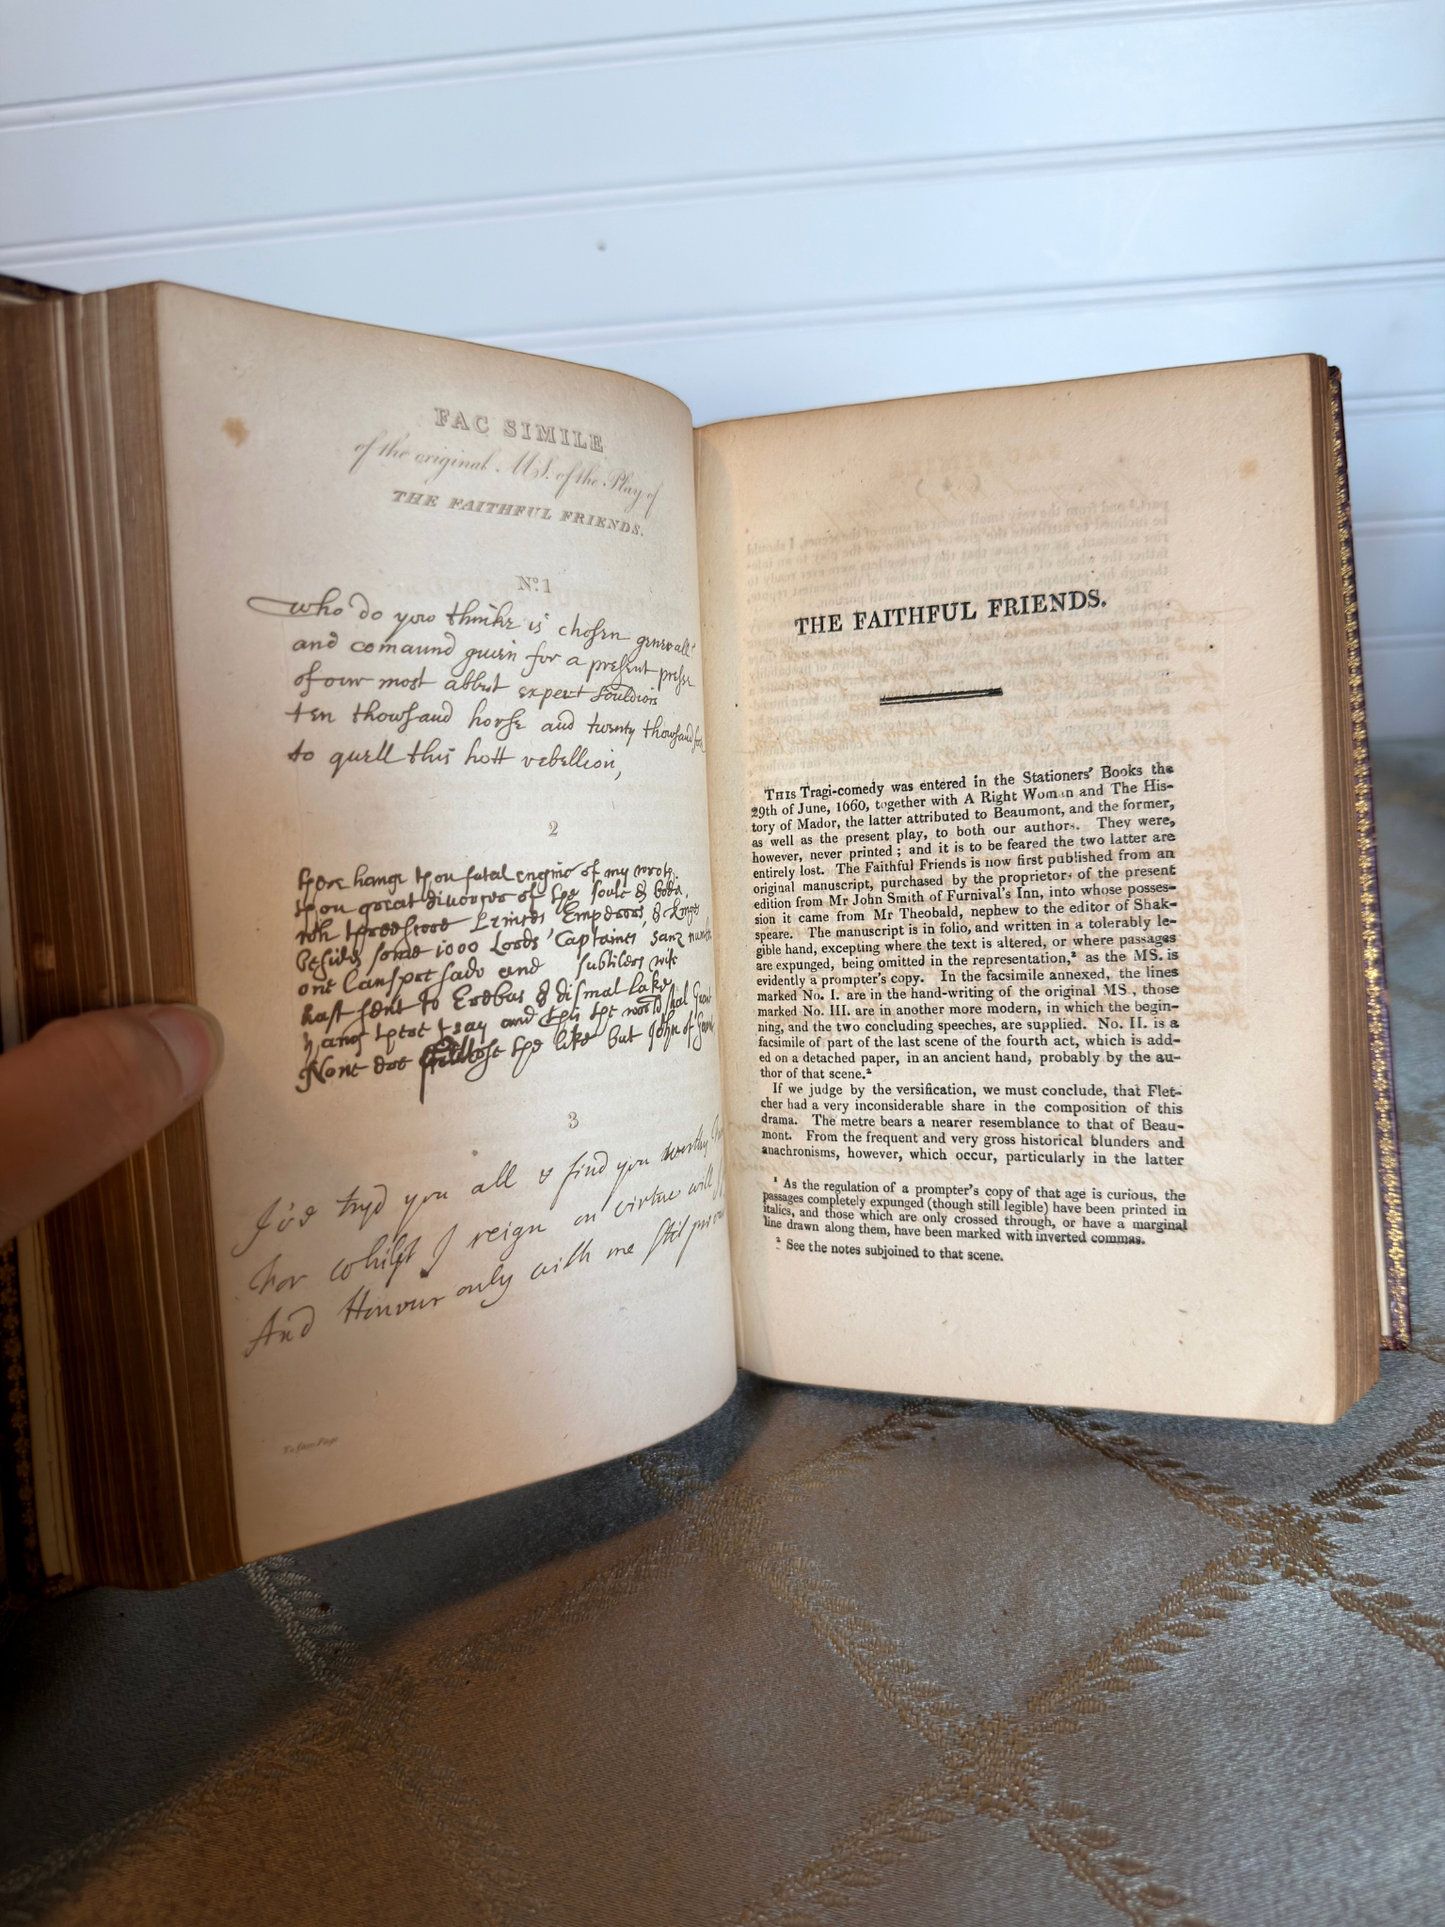 FAC SIMILE
of the original MS. of the Play of
THE FAITHFUL FRIENDS.
No. 1
who do you thinke is chosen generall
and comaund giuen for a present presse
of our most ablest expert souldiors
ten thowsand horse and twenty thowsand foot
to quell this hott rebellion,
2
Here hange thou fatal engine of my
thou great diuorser of the soule & bodi,
Princes Emperors, & kinges
Besids some 1000 Lords Captaines sanz
one and subtilers wife
hast sent to Erebus & dismal lake
hang there I say and the world shal
None dare the like but John of
3
I'ue tryd you all & find you worthy
For whilst I reign on virtue will
And Honour only with me stil
To face Page
THE FAITHFUL FRIENDS.
THIS Tragi-comedy was entered in the Stationers' Books the
29th of June, 1660, together with A Right Woman and The His-
tory of Mador, the latter attributed to Beaumont, and the former,
as well as the present play, to both our authors. They were,
however, never printed; and it is to be feared the two latter are
entirely lost. The Faithful Friends is now first published from an
original manuscript, purchased by the proprietors of the present
edition from Mr John Smith of Furnival's Inn, into whose posses-
sion it came from Mr Theobald, nephew to the editor of Shak-
speare. The manuscript is in folio, and written in a tolerably le-
gible hand, excepting where the text is altered, or where passages
are expunged, being omitted in the representation,¹ as the MS. is
evidently a prompter's copy. In the facsimile annexed, the lines
marked No. I. are in the hand-writing of the original MS., those
marked No. III. are in another more modern, in which the begin-
ning, and the two concluding speeches, are supplied. No. II. is a
facsimile of part of the last scene of the fourth act, which is add-
ed on a detached paper, in an ancient hand, probably by the au-
thor of that scene.²
If we judge by the versification, we must conclude, that Flet-
cher had a very inconsiderable share in the composition of this
drama. The metre bears a nearer resemblance to that of Beau-
mont. From the frequent and very gross historical blunders and
anachronisms, however, which occur, particularly in the latter
¹ As the regulation of a prompter's copy of that age is curious, the
passages completely expunged (though still legible) have been printed in
italics, and those which are only crossed through, or have a marginal
line drawn along them, have been marked with inverted commas.
² See the notes subjoined to that scene.